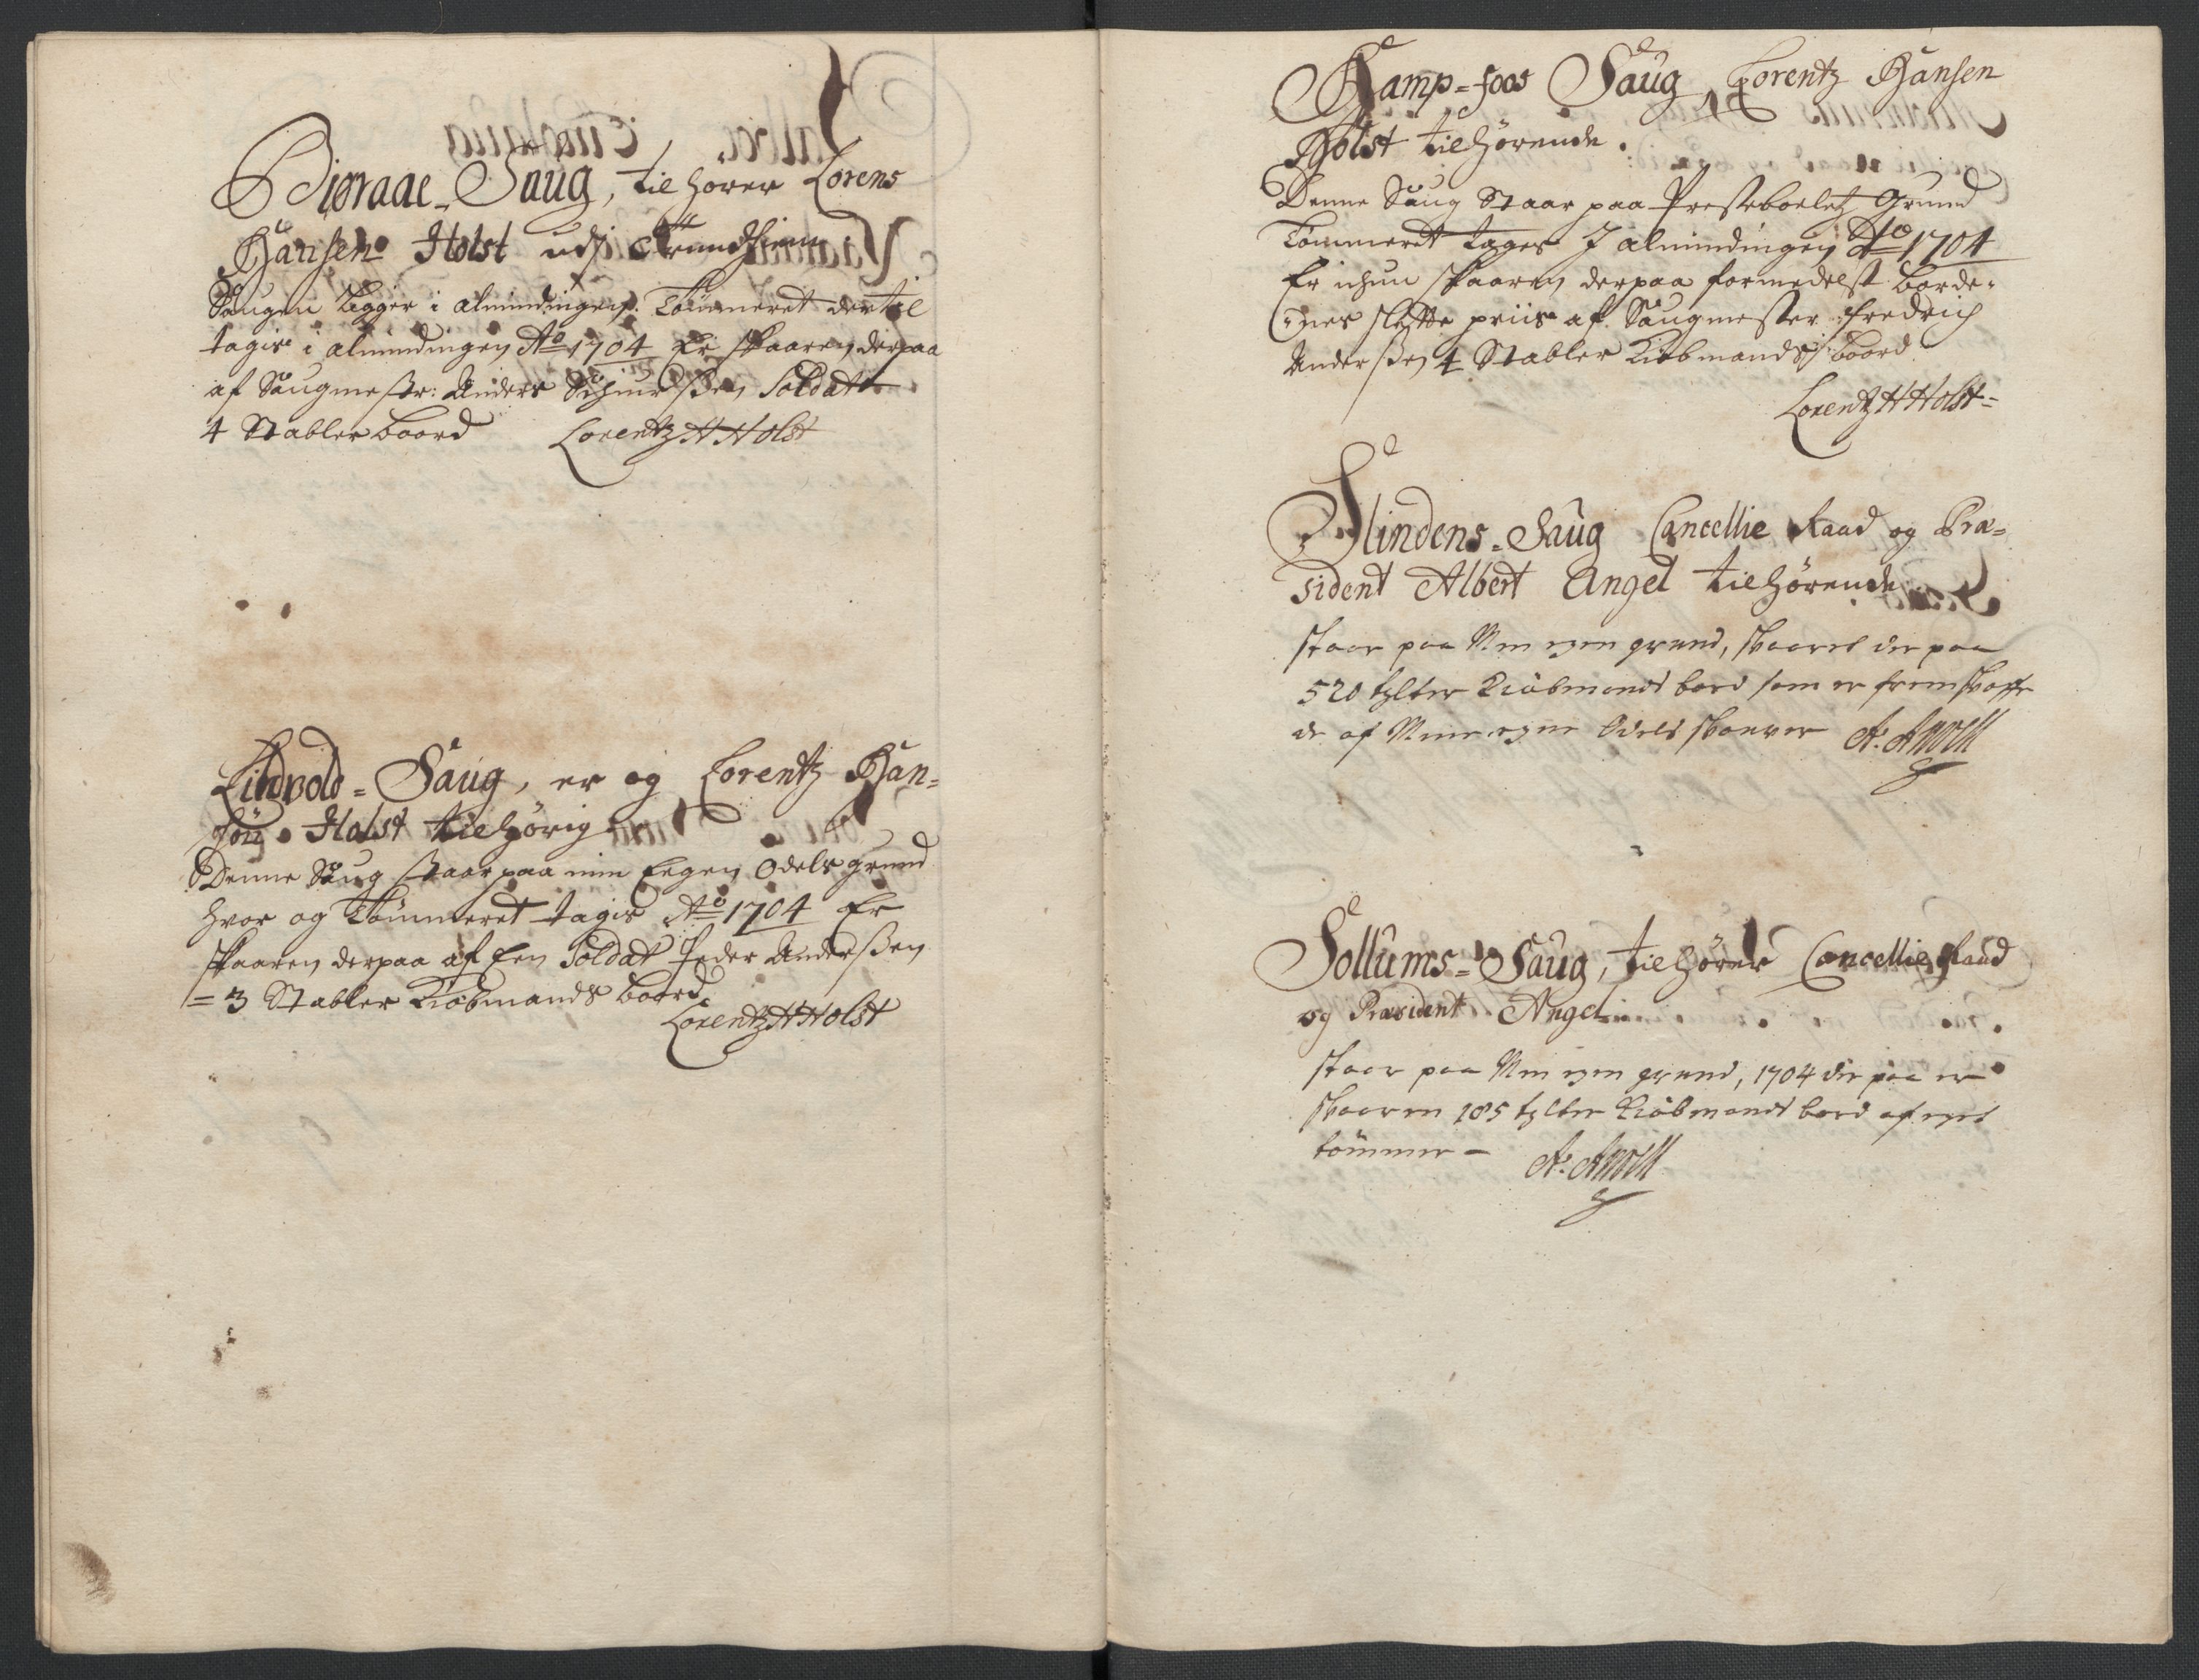 Biøraae-Saug, tilhører Lorens
Hansen Holst udj Trundhiem
Saugen ligger i almindingen. Tømmeret der til
tagis i almindingen Ao 1704 Er skaaren derpaa
af Saugmestr: Anders Siursen Soldatt
4 Stabler boord Lorentz H Holst
Lindvold=Saug, er og Lorentz Han=
søn Holst tilhørig
Denne Saug staar paa min Eegen Odels grund
hvor og Tømmeret tagis Ao 1704 Er
skaaren derpaa af Een Soldat Peder Andersen
= 3 Stabler Kiøbmands boord
Lorentz H Holst
Kamp=foss Saug Lorentz Hansen
Holst tilhørende.
Denne Saug Staar paa Presteboeletz Grund
Tømmeret tages J almindingen Ao 1704
Er ichun skaaren derpaa formedelst borde=
=nes slette priis af Saugmester Fredrich
Andersen 4 Stabler Kiøbmands boord
Lorentz H Holst=
Flindens=Saug Cancellie Raad og Præ=
sident Albert Angel tilhørende
staar paa Min egen grund, skaaret der paa
520 tylter Kiøbmands bord som er fremskaffe
de af Mine egne Odels skouer A. Angell
Sollums=Saug, tilhører Cancellie Raad
og Præsident Angel
staar paa Min egen grund, 1704 der paa er
skaaren 185 tylter Kiøbmands bord af eget
tømmer - A. Angell